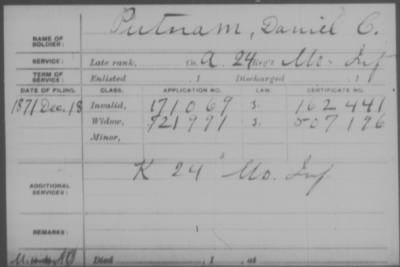 NAME OF SOLDIER: Putnam, Daniel C.
SERVICE: Late rank, Co. A. 24 Reg't Mo. Inf
TERM OF SERVICE: Enlisted , 1 Discharged , 1
DATE OF FILING. CLASS. APPLICATION NO. LAW. CERTIFICATE NO.
1871 Dec. 18 Invalid, 171069 S. 162441
Widow, 721991 S. 507196
Minor,
ADDITIONAL SERVICES: K 24 Mo. Inf
REMARKS:
Died , 1 , at